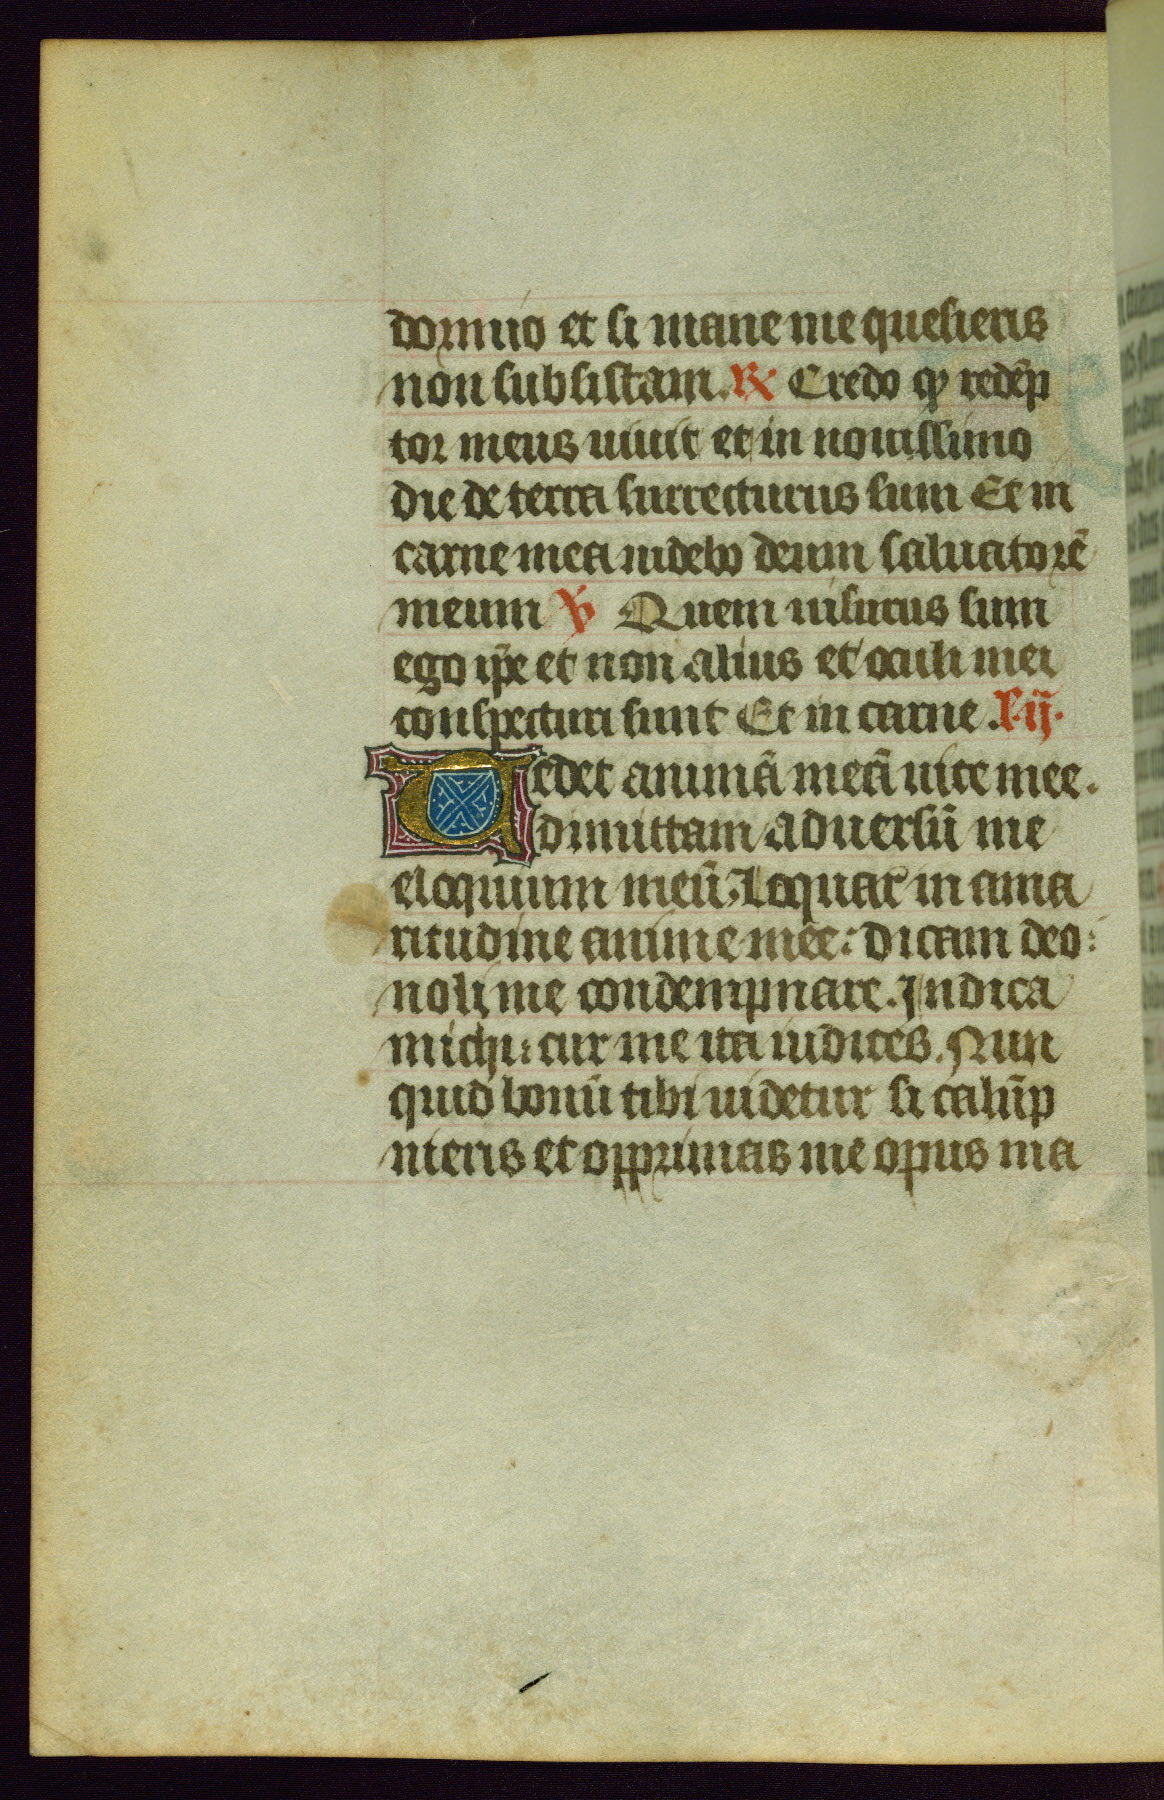 dormio et si mane me quesieris
non subsistam. ℟ Credo ꝙ redēp
tor meus uiuit et in nouissimo
die de terra surrecturus sum Et in
carne mea uidebo deum saluatorē
meum ℣ Quem uisurus sum
ego ip̄e et non alius et oculi mei
conspecturi sunt Et in carne .l̄.ij.
Tedet animā meā uite mee.
dimittam aduersū me
eloquium meū. Loquar in ama
ritudine anime mee: dicam deo:
noli me condempnare. Indica
michi: cur me ita iudices. Nun
quid bonū tibi uidetur si calūp
nieris et opprimas me opus ma